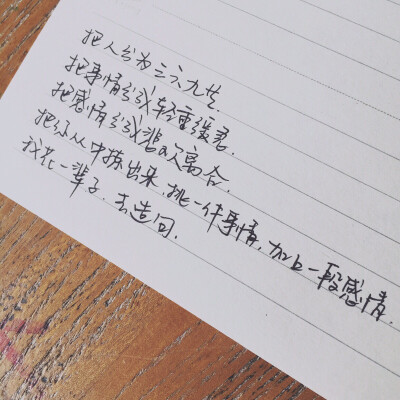 把人分为三六九节.
把事情分成轻重缓急.
把感情分成悲欢离合.
把你从中拣出来.挑一件事情,加上一段感情.
我花一辈子.去造句.